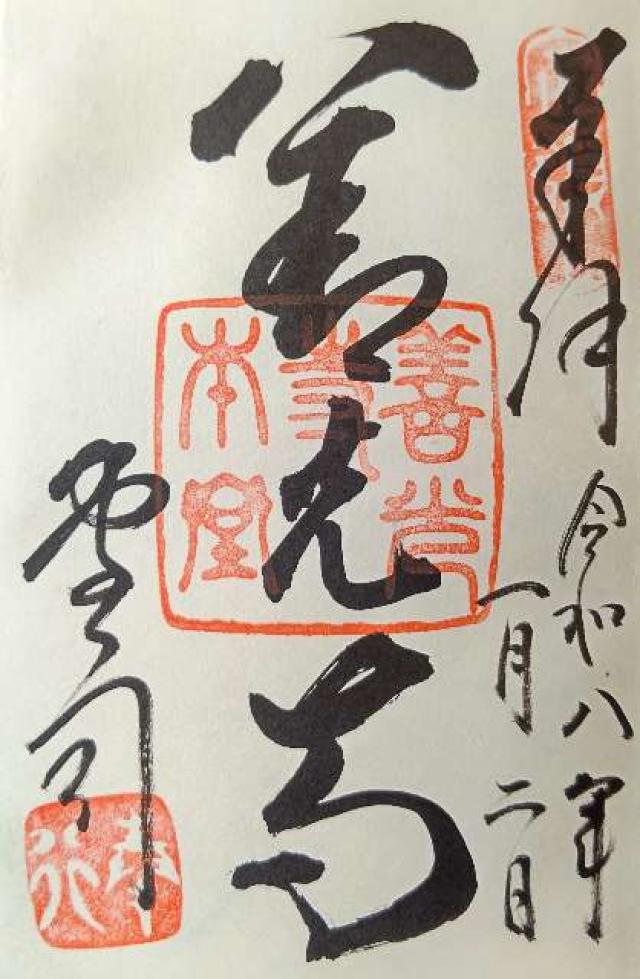 奉拝
令和八年
一月二日
善光寺
善光寺本堂
堂司
奉行